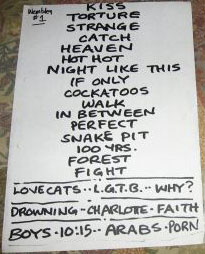 Wembley
#1
KISS
TORTURE
STRANGE
CATCH
HEAVEN
HOT HOT
NIGHT LIKE THIS
IF ONLY
COCKATOOS
WALK
IN BETWEEN
PERFECT
SNAKE PIT
100 YRS.
FOREST
FIGHT
LOVECATS·· L.G.T.B.·· WHY?
DROWNING - CHARLOTTE · FAITH
BOYS · 10:15·· ARABS · PORN